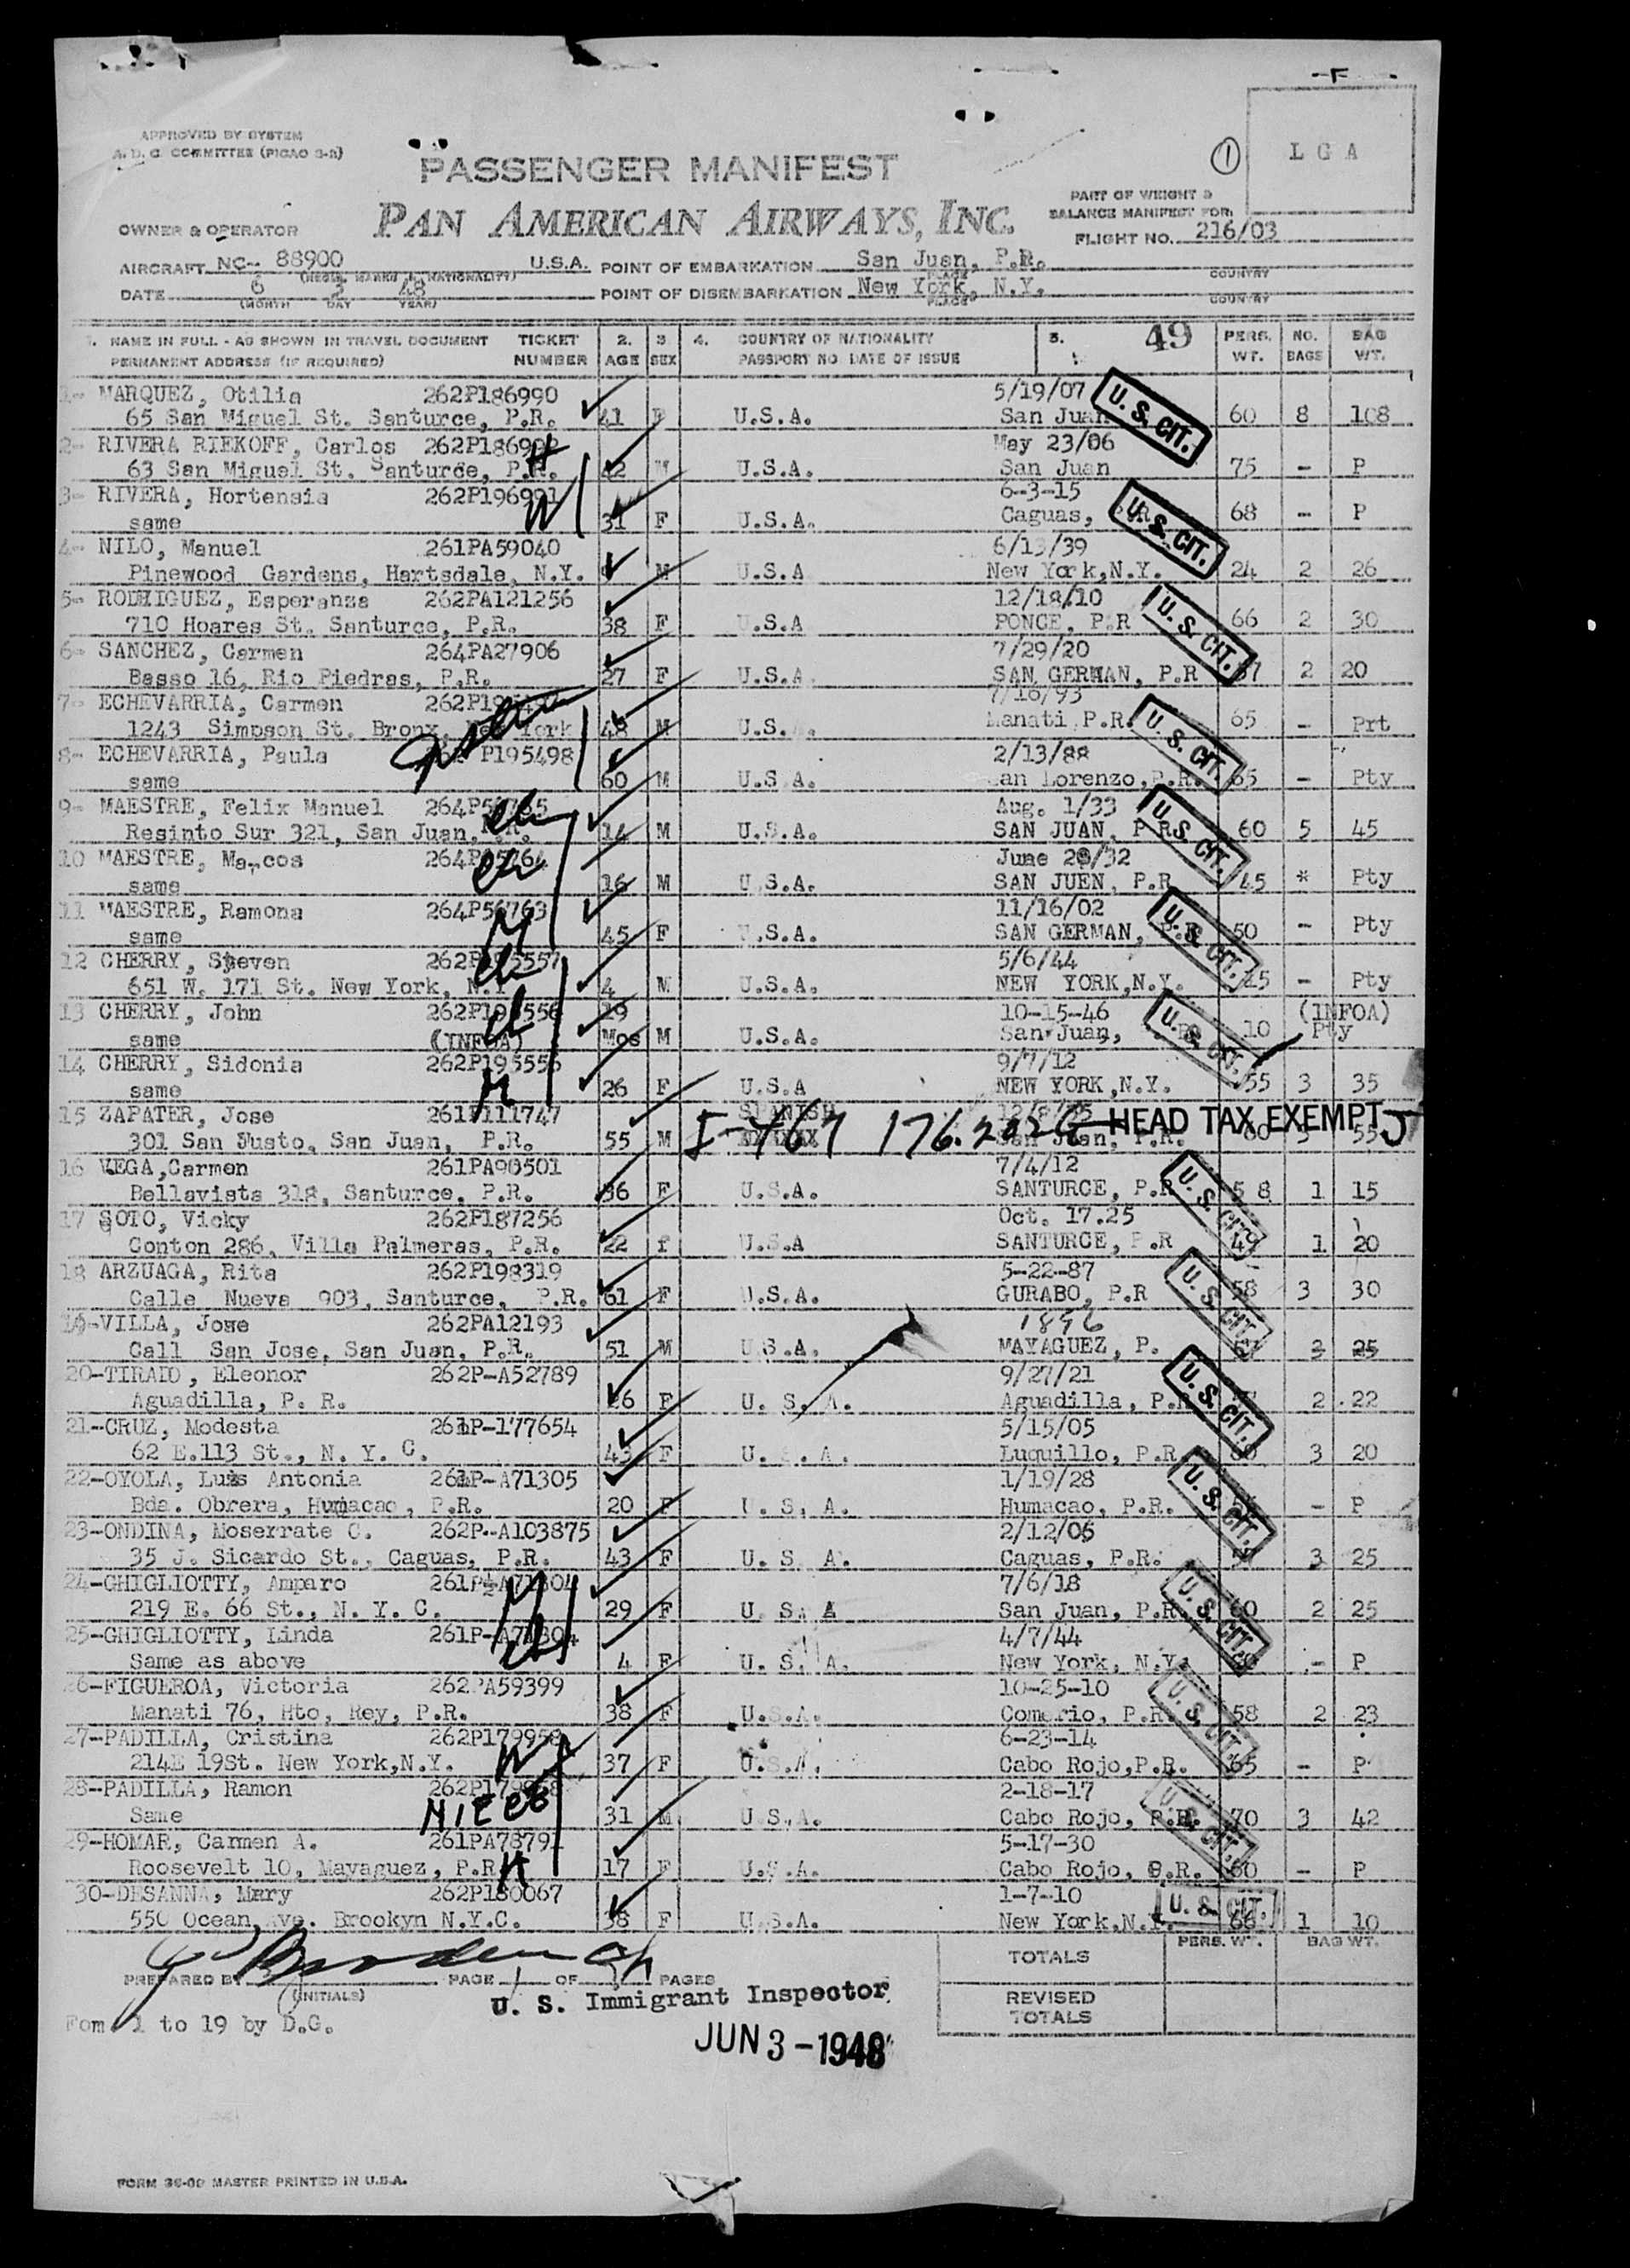 APPROVED BY SYSTEM
A. D. C. COMMITTEE (PICAO 3-2)
PASSENGER MANIFEST
① LGA
PART OF WEIGHT &
BALANCE MANIFEST FOR
OWNER & OPERATOR PAN AMERICAN AIRWAYS, INC. FLIGHT NO. 216/03
AIRCRAFT NC-- 88900 U.S.A. POINT OF EMBARKATION San Juan, P.R.
(REGIS. MARKS & NATIONALITY) PLACE COUNTRY
DATE 6 3 48 POINT OF DISEMBARKATION New York, N.Y.
(MONTH DAY YEAR) PLACE COUNTRY
1. NAME IN FULL - AS SHOWN IN TRAVEL DOCUMENT TICKET 2. 3 4. COUNTRY OF NATIONALITY 5. 49 PERS. NO. BAG
PERMANENT ADDRESS (IF REQUIRED) NUMBER AGE SEX PASSPORT NO. DATE OF ISSUE WT. BAGS WT.
1- MARQUEZ, Otilia 262P186990 5/19/07 U.S. CIT.
65 San Miguel St. Santurce, P.R. 41 F U.S.A. San Juan 60 8 108
2- RIVERA RIEKOFF, Carlos May 23/06
63 San Miguel St. Santurce, P.R. 42 M U.S.A. San Juan 75 - P
3- RIVERA, Hortensia 262P196991 6-3-15 U.S. CIT.
same 31 F U.S.A. Caguas, 68 - P
4- NILO, Manuel 261PA59040 6/13/39
Pinewood Gardens, Hartsdale, N.Y. M U.S.A New York,N.Y. 24 2 26
5- RODRIGUEZ, Esperanza 262PA121256 12/18/10 U.S. CIT.
710 Hoares St. Santurce, P.R. 38 F U.S.A PONCE, P.R 66 2 30
6- SANCHEZ, Carmen 264PA27906 7/29/20
Basso 16, Rio Piedras, P.R. 27 F U.S.A. SAN GERMAN, P.R 2 20
7- ECHEVARRIA, Carmen 7/16/93 U.S. CIT.
1243 Simpson St. Bronx, New York 48 M U.S. Manati P.R. 65 - Prt
8- ECHEVARRIA, Paula P195498 2/13/88
same 60 M U.S.A. San Lorenzo, P.R. 65 - Pty
9- MAESTRE, Felix Manuel Aug. 1/33 U.S. CIT.
Resinto Sur 321, San Juan, P.R. 14 M U.S.A. SAN JUAN, P.R 60 5 45
10 MAESTRE, Marcos June 28/32
same 16 M U.S.A. SAN JUEN, P.R 45 * Pty
11 MAESTRE, Ramona 264P56763 11/16/02 U.S. CIT.
same 45 F U.S.A. SAN GERMAN, 50 - Pty
12 CHERRY, Steven 262P195557 5/6/44
651 W. 171 St. New York, N.Y 4 M U.S.A. NEW YORK,N.Y. - Pty
13 CHERRY, John 262P195556 19 10-15-46 U.S. CIT. (INFOA)
same (INFOA) Mos M U.S.A. San Juan, 10 Pty
14 CHERRY, Sidonia 262P195555 9/7/12
same 26 F U.S.A NEW YORK,N.Y. 55 3 35
15 ZAPATER, Jose 261P111747 SPANISH
301 San Justo, San Juan, P.R. 55 M I-467 176.202 San Juan, P.R. HEAD TAX EXEMPT
16 VEGA,Carmen 261PA90501 7/4/12 U.S. CIT.
Bellavista 318, Santurce, P.R. 36 F U.S.A. SANTURCE, P.R 58 1 15
17 SOTO, Vicky 262P187256 Oct. 17.25
Conton 286, Villa Palmeras, P.R. 22 f U.S.A SANTURCE, P.R 49 1 20
18 ARZUAGA, Rita 262P198319 5-22-87 U.S. CIT.
Calle Nueva 903, Santurce, P.R. 61 F U.S.A. GURABO, P.R 58 3 30
19-VILLA, Jose 262PA12193 1896
Call San Jose, San Juan, P.R. 51 M U.S.A. MAYAGUEZ, P. 2 25
20-TIRADO, Eleonor 262P-A52789 9/27/21 U.S. CIT.
Aguadilla, P. R. 26 F U. S. A. Aguadilla, P.R 2 22
21-CRUZ, Modesta 261P-177654 5/15/05
62 E.113 St., N. Y. C. 43 F U. S. A. Luquillo, P.R 3 20
22-OYOLA, Luis Antonia 261P-A71305 1/19/28 U.S. CIT.
Bda. Obrera, Humacao, P.R. 20 F U. S. A. Humacao, P.R. - P
23-ONDINA, Moserrate C. 262P-A103875 2/12/05
35 J. Sicardo St., Caguas, P.R. 43 F U. S. A. Caguas, P.R. 3 25
24-GHIGLIOTTY, Amparo 7/6/18 U.S. CIT.
219 E. 66 St., N. Y. C. 29 F U. S. A San Juan, P.R. 2 25
25-GHIGLIOTTY, Linda 261P-A71304 4/7/44
Same as above 4 F U. S. A. New York, N.Y. - P
26-FIGUEROA, Victoria 262PA59399 10-25-10 U.S. CIT.
Manati 76, Hto, Rey, P.R. 38 F U.S.A. Comerio, P.R. 58 2 23
27-PADILLA, Cristina 262P179958 6-23-14
214E 19St. New York,N.Y. 37 F U.S.A. Cabo Rojo,P.R. 65 - P
28-PADILLA, Ramon 2-18-17 U.S. CIT.
Same 31 M U.S.A. Cabo Rojo, P.R. 70 3 42
29-HOMAR, Carmen A. 261PA78791 5-17-30
Roosevelt 10, Mayaguez, P.R 17 F U.S.A. Cabo Rojo, P.R. 60 - P
30-DESANNA, Mary 262P180067 1-7-10 U.S. CIT.
550 Ocean, Ave. Brookyn N.Y.C. 38 F U.S.A. New York,N.Y. 66 1 10
PERS. WT. BAG WT.
TOTALS
PREPARED BY PAGE 1 OF PAGES
(INITIALS)
U. S. Immigrant Inspector
REVISED
TOTALS
Fom 1 to 19 by D.G.
JUN 3 - 1948
FORM 36-09 MASTER PRINTED IN U.S.A.